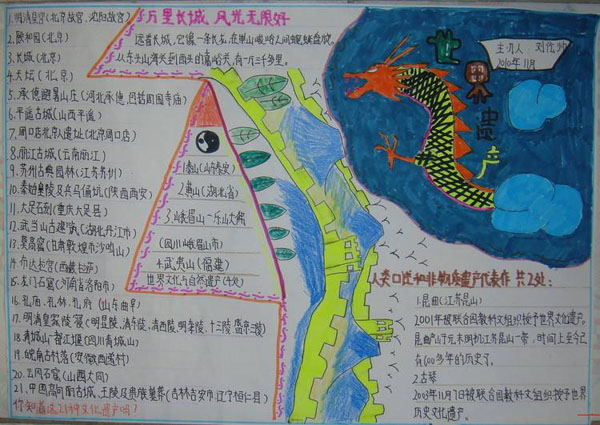 1.明清皇宫(北京故宫、沈阳故宫)
2.颐和园(北京)
3.长城(北京)
4.天坛(北京)
5.承德避暑山庄(河北承德、包括周围寺庙)
6.平遥古城(山西平遥)
7.周口店北京人遗址(北京周口店)
8.丽江古城(云南丽江)
9.苏州古典园林(江苏苏州)
10.秦始皇陵及兵马俑坑(陕西西安)
11.大足石刻(重庆大足县)
12.武当山古建筑(湖北丹江市)
13.莫高窟(甘肃敦煌市沙鸣山)
14.布达拉宫(西藏拉萨)
15.龙门石窟(河南省洛阳市)
16.孔庙、孔林、孔府(山东曲阜)
17.明清皇家陵寝(明显陵、清东陵、清西陵、明孝陵、十三陵、盛京三陵)
18.青城山-都江堰(四川青城山)
19.皖南古村落(安徽西递村)
20.云冈石窟(山西大同)
21.中国高句丽古城、王陵及贵族墓葬(吉林吉安市 辽宁桓仁县)
你知道这21种文化遗产吗?
万里长城,风光无限好
远看长城,它像一条长龙,在崇山峻岭之间蜿蜒盘旋。
从东头山海关到西头的嘉峪关,有一万三千多里。
1.泰山(山东泰安)
2.黄山(湖北省)
3.峨眉山-乐山大佛
(四川峨眉山市)
4.武夷山(福建)
世界文化与自然遗产(4处)
世界遗产
主办人:刘
2010年11月
人类口述和非物质遗产代表作 共2处:
1.昆曲(江苏昆山)
2001年被联合国教科文组织授予世界文化遗产。
昆曲产于元末明初江苏昆山一带,时间上至今已
有600多年的历史了。
2.古琴
2003年11月7日被联合国教科文组织授予世界
历史文化遗产。